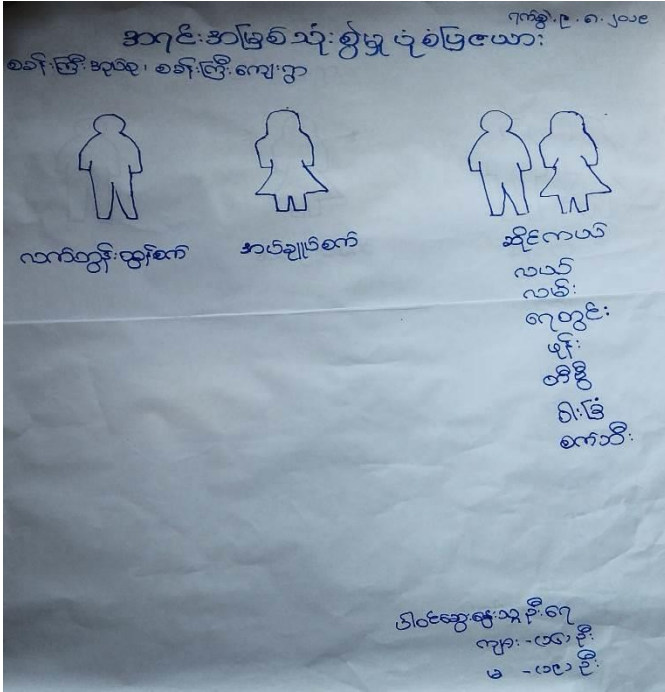 ရက်စွဲ၊ ၉ . ၈ . ၂၀၁၉
အရင်းအမြစ်သုံးစွဲမှု ပုံစံပြဇယား
စခန်းကြီးအုပ်စု၊ စခန်းကြီးကျေးရွာ
လက်တွန်းထွန်စက်
အပ်ချုပ်စက်
ဆိုင်ကယ်
လယ်
လမ်း
ရေတွင်း
ဖုန်း
တီဗွီ
ဝါးခြံ
စက်ဘီး
ပါဝင်ဆွေးနွေးသူဦးရေ
ကျား -(၁၄)ဦး
မ -(၁၉)ဦး